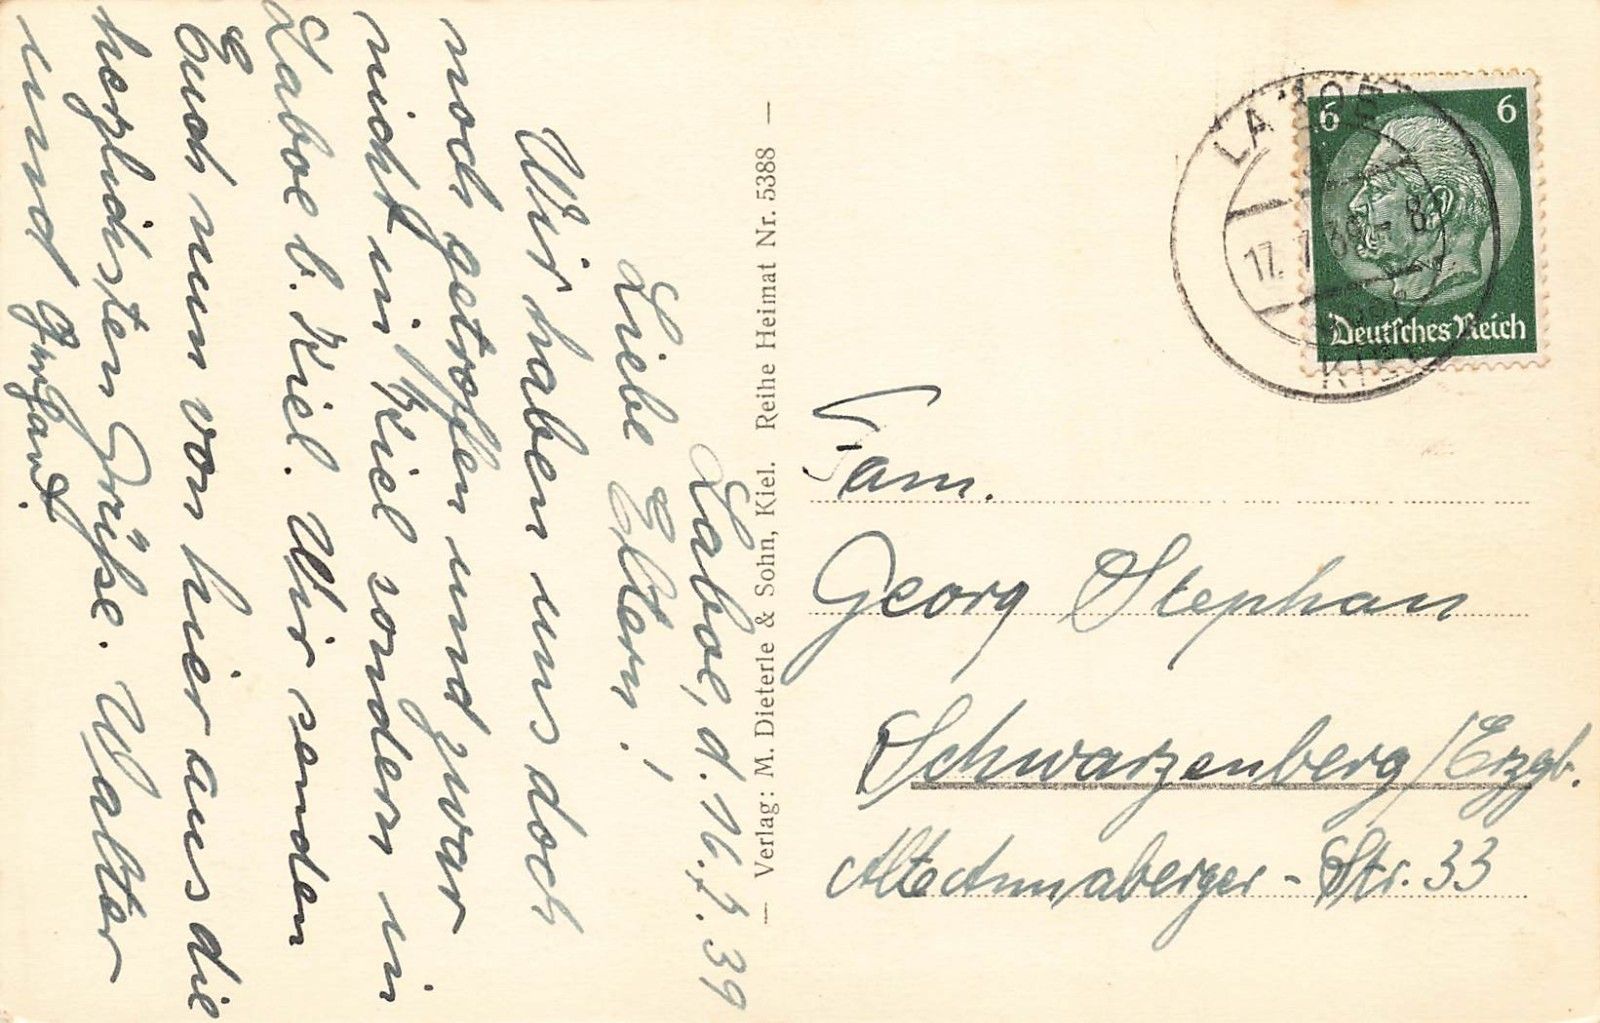 Laboe, d. 16.7.39
Liebe Eltern!
Wir haben uns doch
noch getroffen und zwar
nicht in Kiel sondern in
Laboe b. Kiel. Wir senden
Euch nun von hier aus die
herzlichsten Grüße. Walter
und
— Verlag: M. Dieterle & Sohn, Kiel. Reihe Heimat Nr. 5388 —
LABOE
17.7.39-8
KIEL
6 6
Deutsches Reich
Fam.
Georg Stephan
Schwarzenberg/Erzgb.
Alte Annaberger-Str. 33